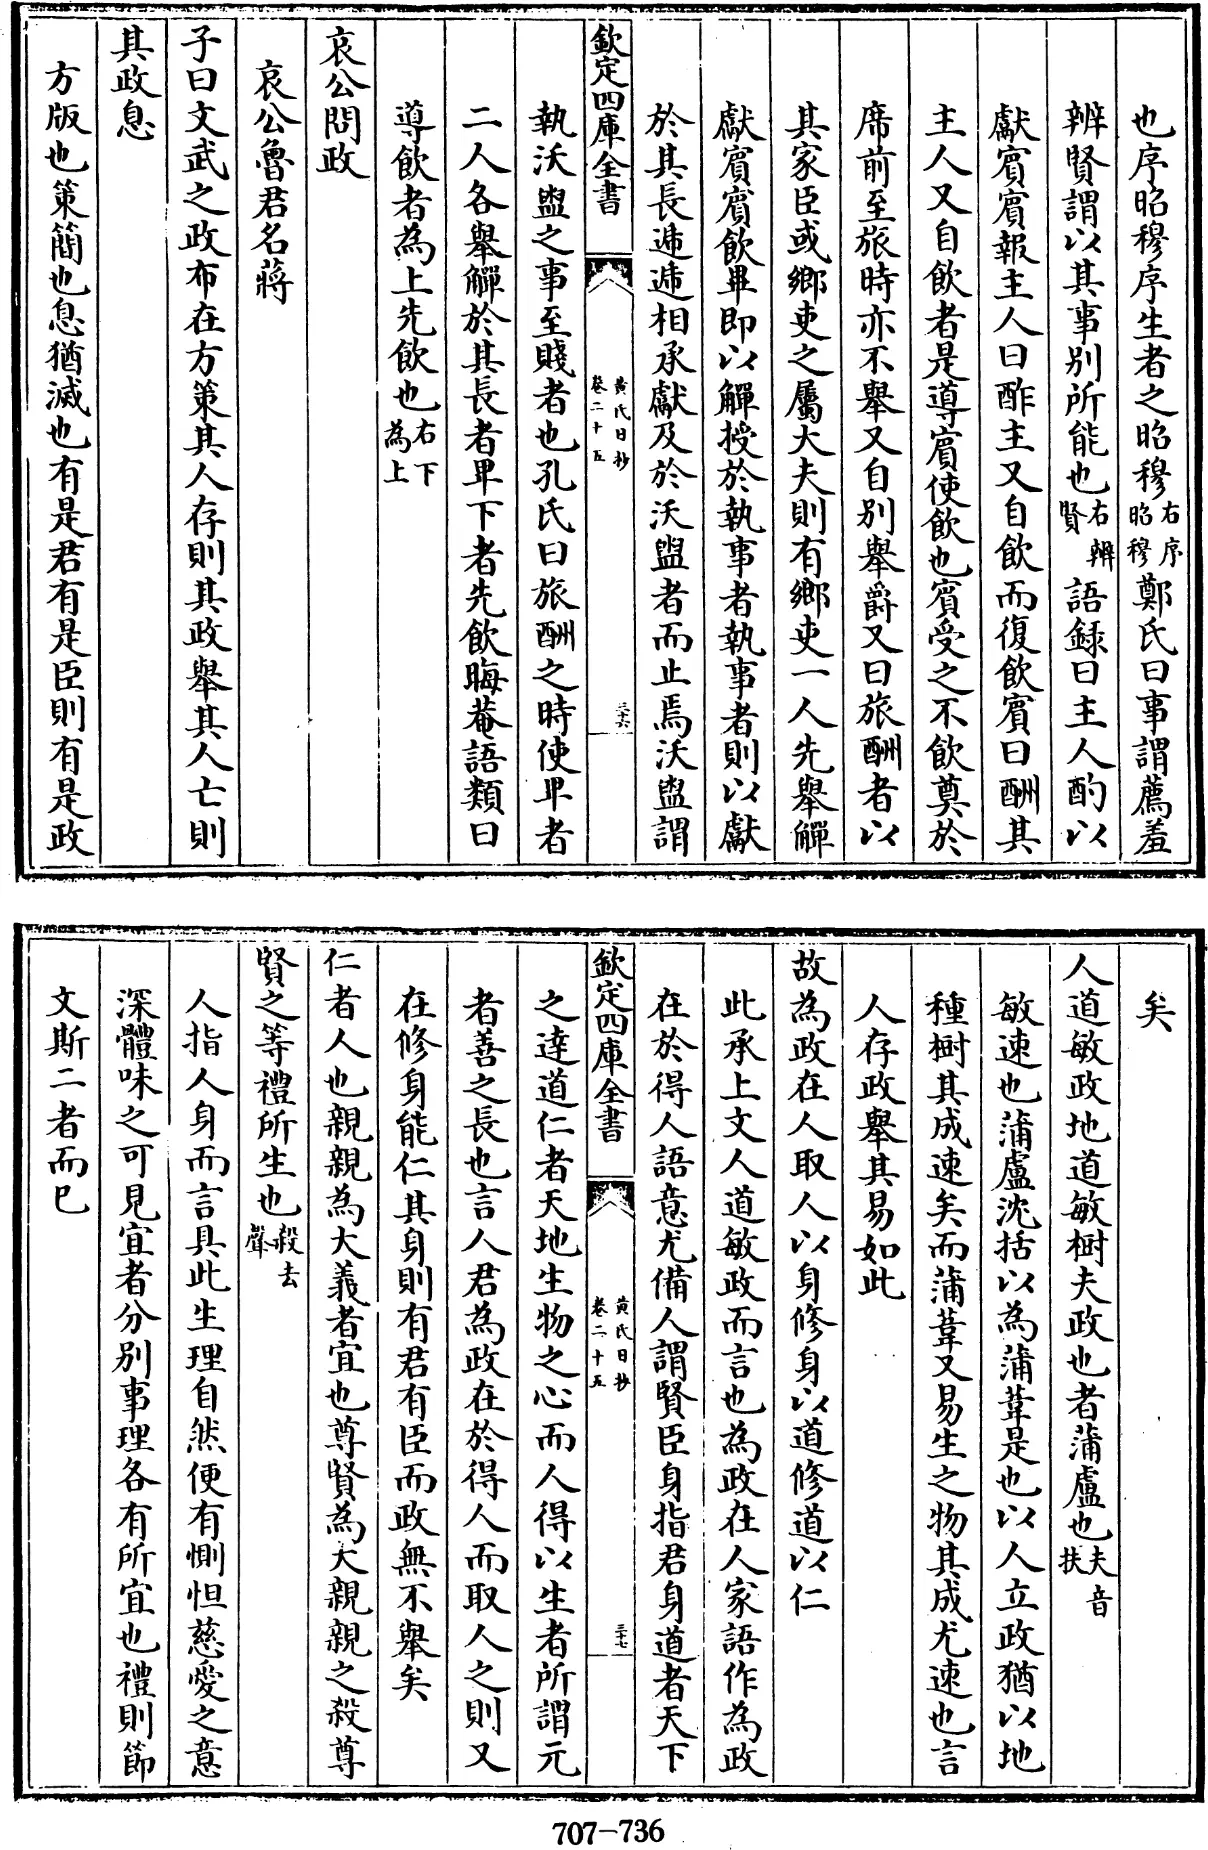 也序昭穆序生者之昭穆右序昭穆鄭氏曰事謂薦羞
辨賢謂以其事别所能也右辨賢語録曰主人酌以
獻賓賓報主人曰酢主又自飲而復飲賓曰酬其
主人又自飲者是導賓使飲也賓受之不飲奠於
席前至旅時亦不舉又自别舉爵又曰旅酬者以
其家臣或鄉吏之屬大夫則有鄉吏一人先舉觶
獻賓賓飲畢即以觶授於執事者執事者則以獻
於其長遞遞相承獻及於沃盥者而止焉沃盥謂
欽定四庫全書
黄氏日抄
卷二十五
三十六
執沃盥之事至賤者也孔氏曰旅酬之時使卑者
二人各舉觶於其長者卑下者先飲晦菴語類曰
導飲者為上先飲也右下為上
哀公問政
哀公魯君名蔣
子曰文武之政布在方策其人存則其政舉其人亡則
其政息
方版也策簡也息猶滅也有是君有是臣則有是政
矣
人道敏政地道敏樹夫政也者蒲盧也夫音扶
敏速也蒲盧沈括以為蒲葦是也以人立政猶以地
種樹其成速矣而蒲葦又易生之物其成尤速也言
人存政舉其易如此
故為政在人取人以身修身以道修道以仁
此承上文人道敏政而言也為政在人家語作為政
在於得人語意尤備人謂賢臣身指君身道者天下
欽定四庫全書
黄氏日抄
卷二十五
三十七
之達道仁者天地生物之心而人得以生者所謂元
者善之長也言人君為政在於得人而取人之則又
在修身能仁其身則有君有臣而政無不舉矣
仁者人也親親為大義者宜也尊賢為大親親之殺尊
賢之等禮所生也殺去聲
人指人身而言具此生理自然便有惻怛慈愛之意
深體味之可見宜者分别事理各有所宜也禮則節
文斯二者而已
707-736